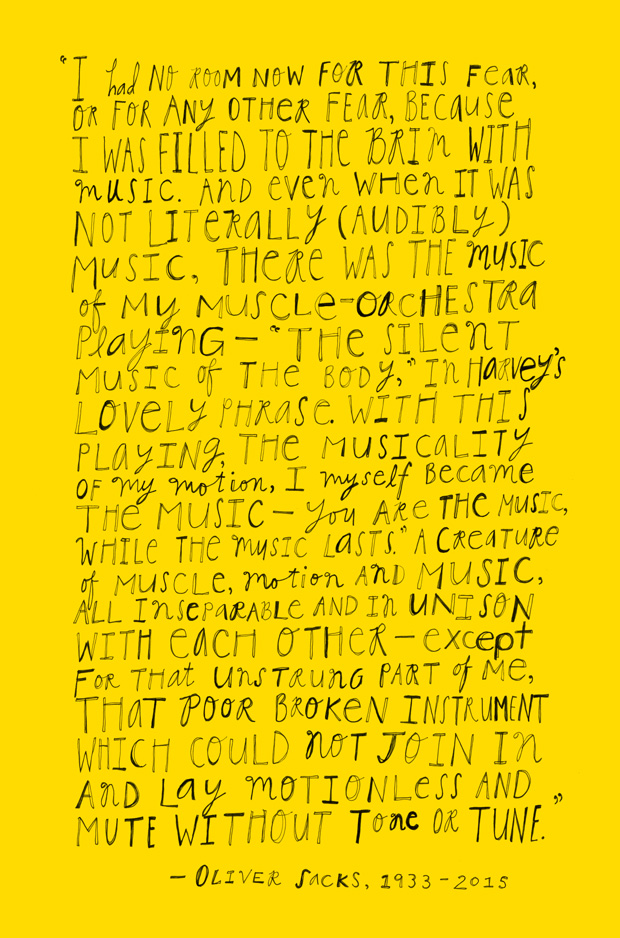 “I had NO ROOM NOW FOR THIS Fear,
OR FOR ANy OTHER FEAR, BECAUSE
I WAS FILLED TO THE BRIM WITH
music. AND even WHen IT WAS
NOT LITERALLY (AUDIBLY)
MUSIC, THERE WAS THE MUSIC
of MY MUSCLE-ORCHESTRA
Playing – “THE SILENT
MUSIC of THE BODY,” In Harvey's
LOVELY PHRASE. WITH THIS
PLAYING, THE MUSICALITY
OF my motion, I myself Became
THE MUSIC – You ARe THE MUSIC,
WHILE THE music LASTS.” A CREATURE
of MUSCLE, motion AND MUSIC,
ALL INSEPARABLE AND In UNISON
WITH EACH OTHER – except
FOR THAT UNSTRUNG PART of Me,
THAT POOR BROKEN INSTRUMENT
WHICH COULD NOT JOIN In
AND Lay MOTIONLESS AND
MUTE WITHOUT Tone OR TUNE.”
– OLIVER SACKS, 1933-2015